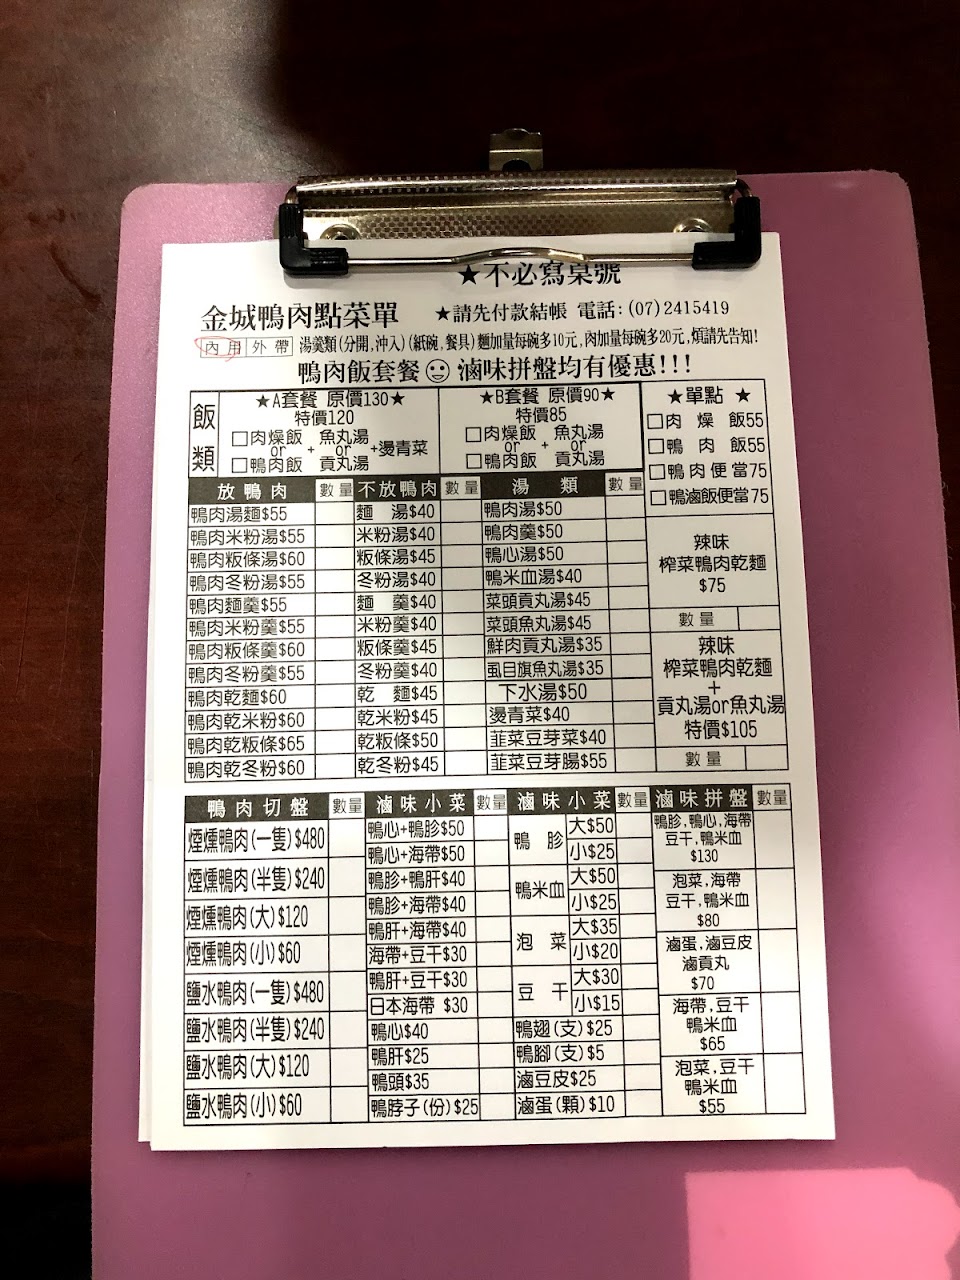 ★不必寫桌號
金城鴨肉點菜單 ★請先付款結帳 電話:(07)2415419
內用 外帶 湯羹類(分開,沖入)(紙碗,餐具)麵加量每碗多10元,肉加量每碗多20元,煩請先告知!
鴨肉飯套餐 滷味拼盤均有優惠!!!
飯類
★A套餐 原價130★
特價120
□肉燥飯 or □鴨肉飯 + 魚丸湯 or 貢丸湯 +燙青菜
★B套餐 原價90★
特價85
□肉燥飯 or □鴨肉飯 + 魚丸湯 or 貢丸湯
★單點 ★
□肉 燥 飯55
□鴨 肉 飯55
□鴨肉便當75
□鴨滷飯便當75
放鴨肉 數量
鴨肉湯麵$55
鴨肉米粉湯$55
鴨肉粄條湯$60
鴨肉冬粉湯$55
鴨肉麵羹$55
鴨肉米粉羹$55
鴨肉粄條羹$60
鴨肉冬粉羹$55
鴨肉乾麵$60
鴨肉乾米粉$60
鴨肉乾粄條$65
鴨肉乾冬粉$60
不放鴨肉 數量
麵 湯$40
米粉湯$40
粄條湯$45
冬粉湯$40
麵 羹$40
米粉羹$40
粄條羹$45
冬粉羹$40
乾 麵$45
乾米粉$45
乾粄條$50
乾冬粉$45
湯 類 數量
鴨肉湯$50
鴨肉羹$50
鴨心湯$50
鴨米血湯$40
菜頭貢丸湯$45
菜頭魚丸湯$45
鮮肉貢丸湯$35
虱目旗魚丸湯$35
下水湯$50
燙青菜$40
韮菜豆芽菜$40
韮菜豆芽腸$55
辣味
榨菜鴨肉乾麵
$75
數量
辣味
榨菜鴨肉乾麵
+
貢丸湯or魚丸湯
特價$105
數量
鴨肉切盤 數量
煙燻鴨肉(一隻)$480
煙燻鴨肉(半隻)$240
煙燻鴨肉(大)$120
煙燻鴨肉(小)$60
鹽水鴨肉(一隻)$480
鹽水鴨肉(半隻)$240
鹽水鴨肉(大)$120
鹽水鴨肉(小)$60
滷味小菜 數量
鴨心+鴨胗$50
鴨心+海帶$50
鴨胗+鴨肝$40
鴨胗+海帶$40
鴨肝+海帶$40
海帶+豆干$30
鴨肝+豆干$30
日本海帶 $30
鴨心$40
鴨肝$25
鴨頭$35
鴨脖子(份)$25
滷味小菜 數量
鴨 胗 大$50
小$25
鴨米血 大$50
小$25
泡 菜 大$35
小$20
豆 干 大$30
小$15
鴨翅(支)$25
鴨腳(支)$5
滷豆皮$25
滷蛋(顆)$10
滷味拼盤 數量
鴨胗,鴨心,海帶
豆干,鴨米血
$130
泡菜,海帶
豆干,鴨米血
$80
滷蛋,滷豆皮
滷貢丸
$70
海帶,豆干
鴨米血
$65
泡菜,豆干
鴨米血
$55